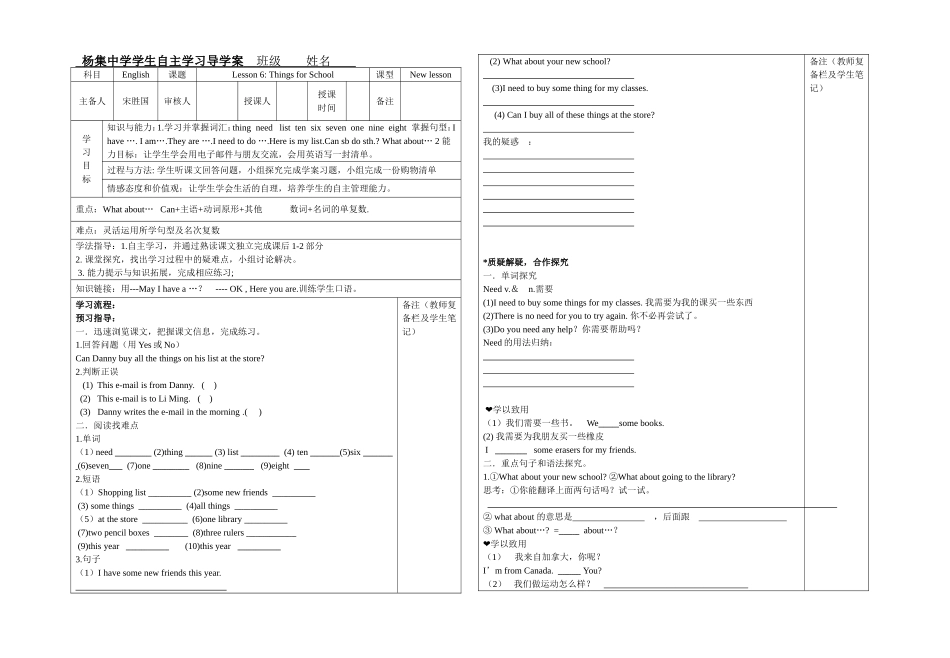 杨集中学学生自主学习导学案 班级____姓名____
科目 English 课题 Lesson 6: Things for School 课型 New lesson
主备人 宋胜国 审核人 授课人 授课时间 备注
学习目标
知识与能力:1.学习并掌握词汇:thing need list ten six seven one nine eight 掌握句型:I
have ···. I am···.They are ···.I need to do ···.Here is my list.Can sb do sth.? What about··· 2 能
力目标：让学生学会用电子邮件与朋友交流，会用英语写一封清单。
过程与方法: 学生听课文回答问题，小组探究完成学案习题，小组完成一份购物清单
情感态度和价值观：让学生学会生活的自理，培养学生的自主管理能力。
重点：What about··· Can+主语+动词原形+其他 数词+名词的单复数.
难点：灵活运用所学句型及名次复数
学法指导：1.自主学习，并通过熟读课文独立完成课后 1-2 部分
2. 课堂探究，找出学习过程中的疑难点，小组讨论解决。
3. 能力提示与知识拓展，完成相应练习;
知识链接：用---May I have a ···？ ---- OK , Here you are.训练学生口语。
学习流程:
预习指导:
一．迅速浏览课文，把握课文信息，完成练习。
1.回答问题（用 Yes 或 No）
Can Danny buy all the things on his list at the store?
2.判断正误
(1) This e-mail is from Danny. ( )
(2) This e-mail is to Li Ming. ( )
(3) Danny writes the e-mail in the morning .( )
二．阅读找难点
1.单词
（1）need ________ (2)thing ______ (3) list ________ (4) ten ______(5)six ______
(6)seven___ (7)one ________ (8)nine _______ (9)eight ___
2.短语
（1）Shopping list __________ (2)some new friends __________
(3) some things __________ (4)all things __________
（5）at the store __________ (6)one library __________
(7)two pencil boxes ________ (8)three rulers ___________
(9)this year __________ (10)this year __________
3.句子
（1）I have some new friends this year.
备注（教师复
备栏及学生笔
记）
(2) What about your new school?
(3)I need to buy some thing for my classes.
(4) Can I buy all of these things at the store?
我的疑惑 ：
*质疑解疑，合作探究
一．单词探究
Need v.＆ n.需要
(1)I need to buy some things for my classes. 我需要为我的课买一些东西
(2)There is no need for you to try again. 你不必再尝试了。
(3)Do you need any help？你需要帮助吗？
Need 的用法归纳：
❤学以致用
（1）我们需要一些书。 We____some books.
(2) 我需要为我朋友买一些橡皮
I _______ some erasers for my friends.
二．重点句子和语法探究。
1.①What about your new school? ②What about going to the library?
思考：①你能翻译上面两句话吗？试一试。
② what about 的意思是________________ ，后面跟 ____________________
③ What about···? =____ about···？
❤学以致用
（1） 我来自加拿大，你呢？
I’m from Canada. _____ You?
（2） 我们做运动怎么样？ ________________________________
备注（教师复
备栏及学生笔
记）